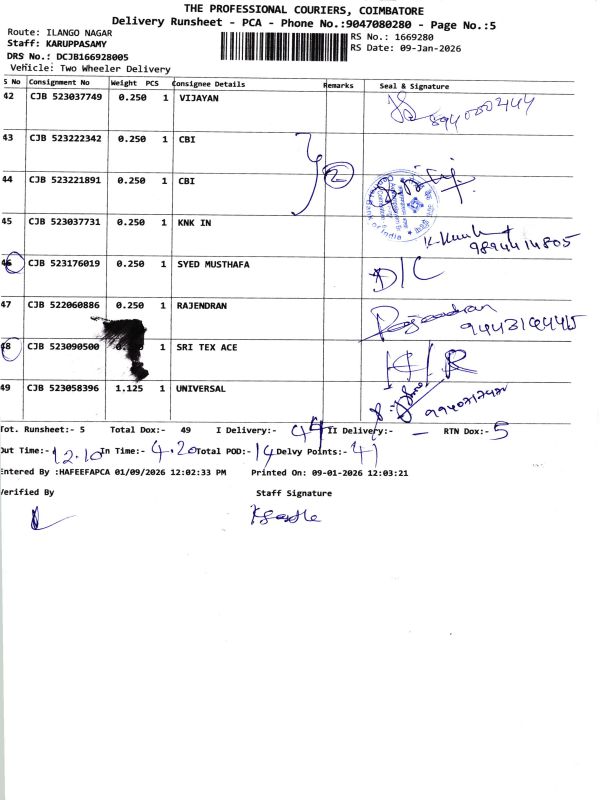 THE PROFESSIONAL COURIERS, COIMBATORE
Delivery Runsheet - PCA - Phone No.:9047080280 - Page No.:5
Route: ILANGO NAGAR
RS No.: 1669280
Staff: KARUPPASAMY
RS Date: 09-Jan-2026
DRS No.: DCJB166928005
Vehicle: Two Wheeler Delivery
S No Consignment No Weight PCS Consignee Details Remarks Seal & Signature
42 CJB 523037749 0.250 1 VIJAYAN
43 CJB 523222342 0.250 1 CBI
2
44 CJB 523221891 0.250 1 CBI
45 CJB 523037731 0.250 1 KNK IN
9894414805
46 CJB 523176019 0.250 1 SYED MUSTHAFA D/C
47 CJB 522060886 0.250 1 RAJENDRAN Rajendran
48 CJB 523090500 1 SRI TEX ACE H/R
49 CJB 523058396 1.125 1 UNIVERSAL
Tot. Runsheet:- 5 Total Dox:- 49 I Delivery:- 44 II Delivery:- — RTN Dox:- 5
Out Time:- 12.10 In Time:- 4.20 Total POD:- 14 Delvy Points:- 41
Entered By :HAFEEFAPCA 01/09/2026 12:02:33 PM Printed On: 09-01-2026 12:03:21
Verified By Staff Signature